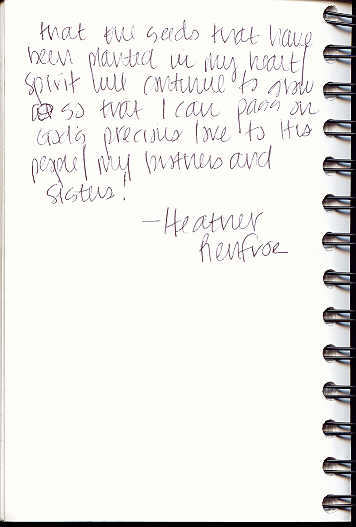 that the seeds that have
been planted in my heart/
spirit will continue to grow
so that I can pass on
God's precious love to His
people/my brothers and
sisters!
—Heather
Renfroe